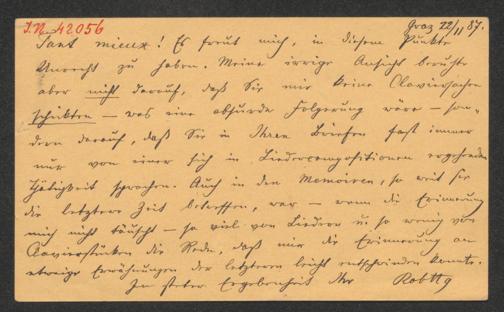 I.N. 42056
Graz 22/11 87.
Tant mieux! Es freut mich, in diesem Punkte
Unrecht zu haben. Meine irrige Ansicht beruhte
aber nicht darauf, daß Sie mir keine Claviersachen
schickten — was eine absurde Folgerung wäre — son-
dern darauf, daß Sie in Ihren Briefen fast immer
nur von einer sich in Liedercompositionen ergehenden
Thätigkeit sprachen. Auch in den Memoiren, so weit sie
die letztere Zeit betreffen, war — wenn die Erinnerung
mich nicht täuscht — so viel von Liedern u. so wenig von
Clavierstücken die Rede, daß mir die Erinnerung an
etwaige Erwähnungen der letzteren leicht entschwinden konnte.
In steter Ergebenheit Ihr